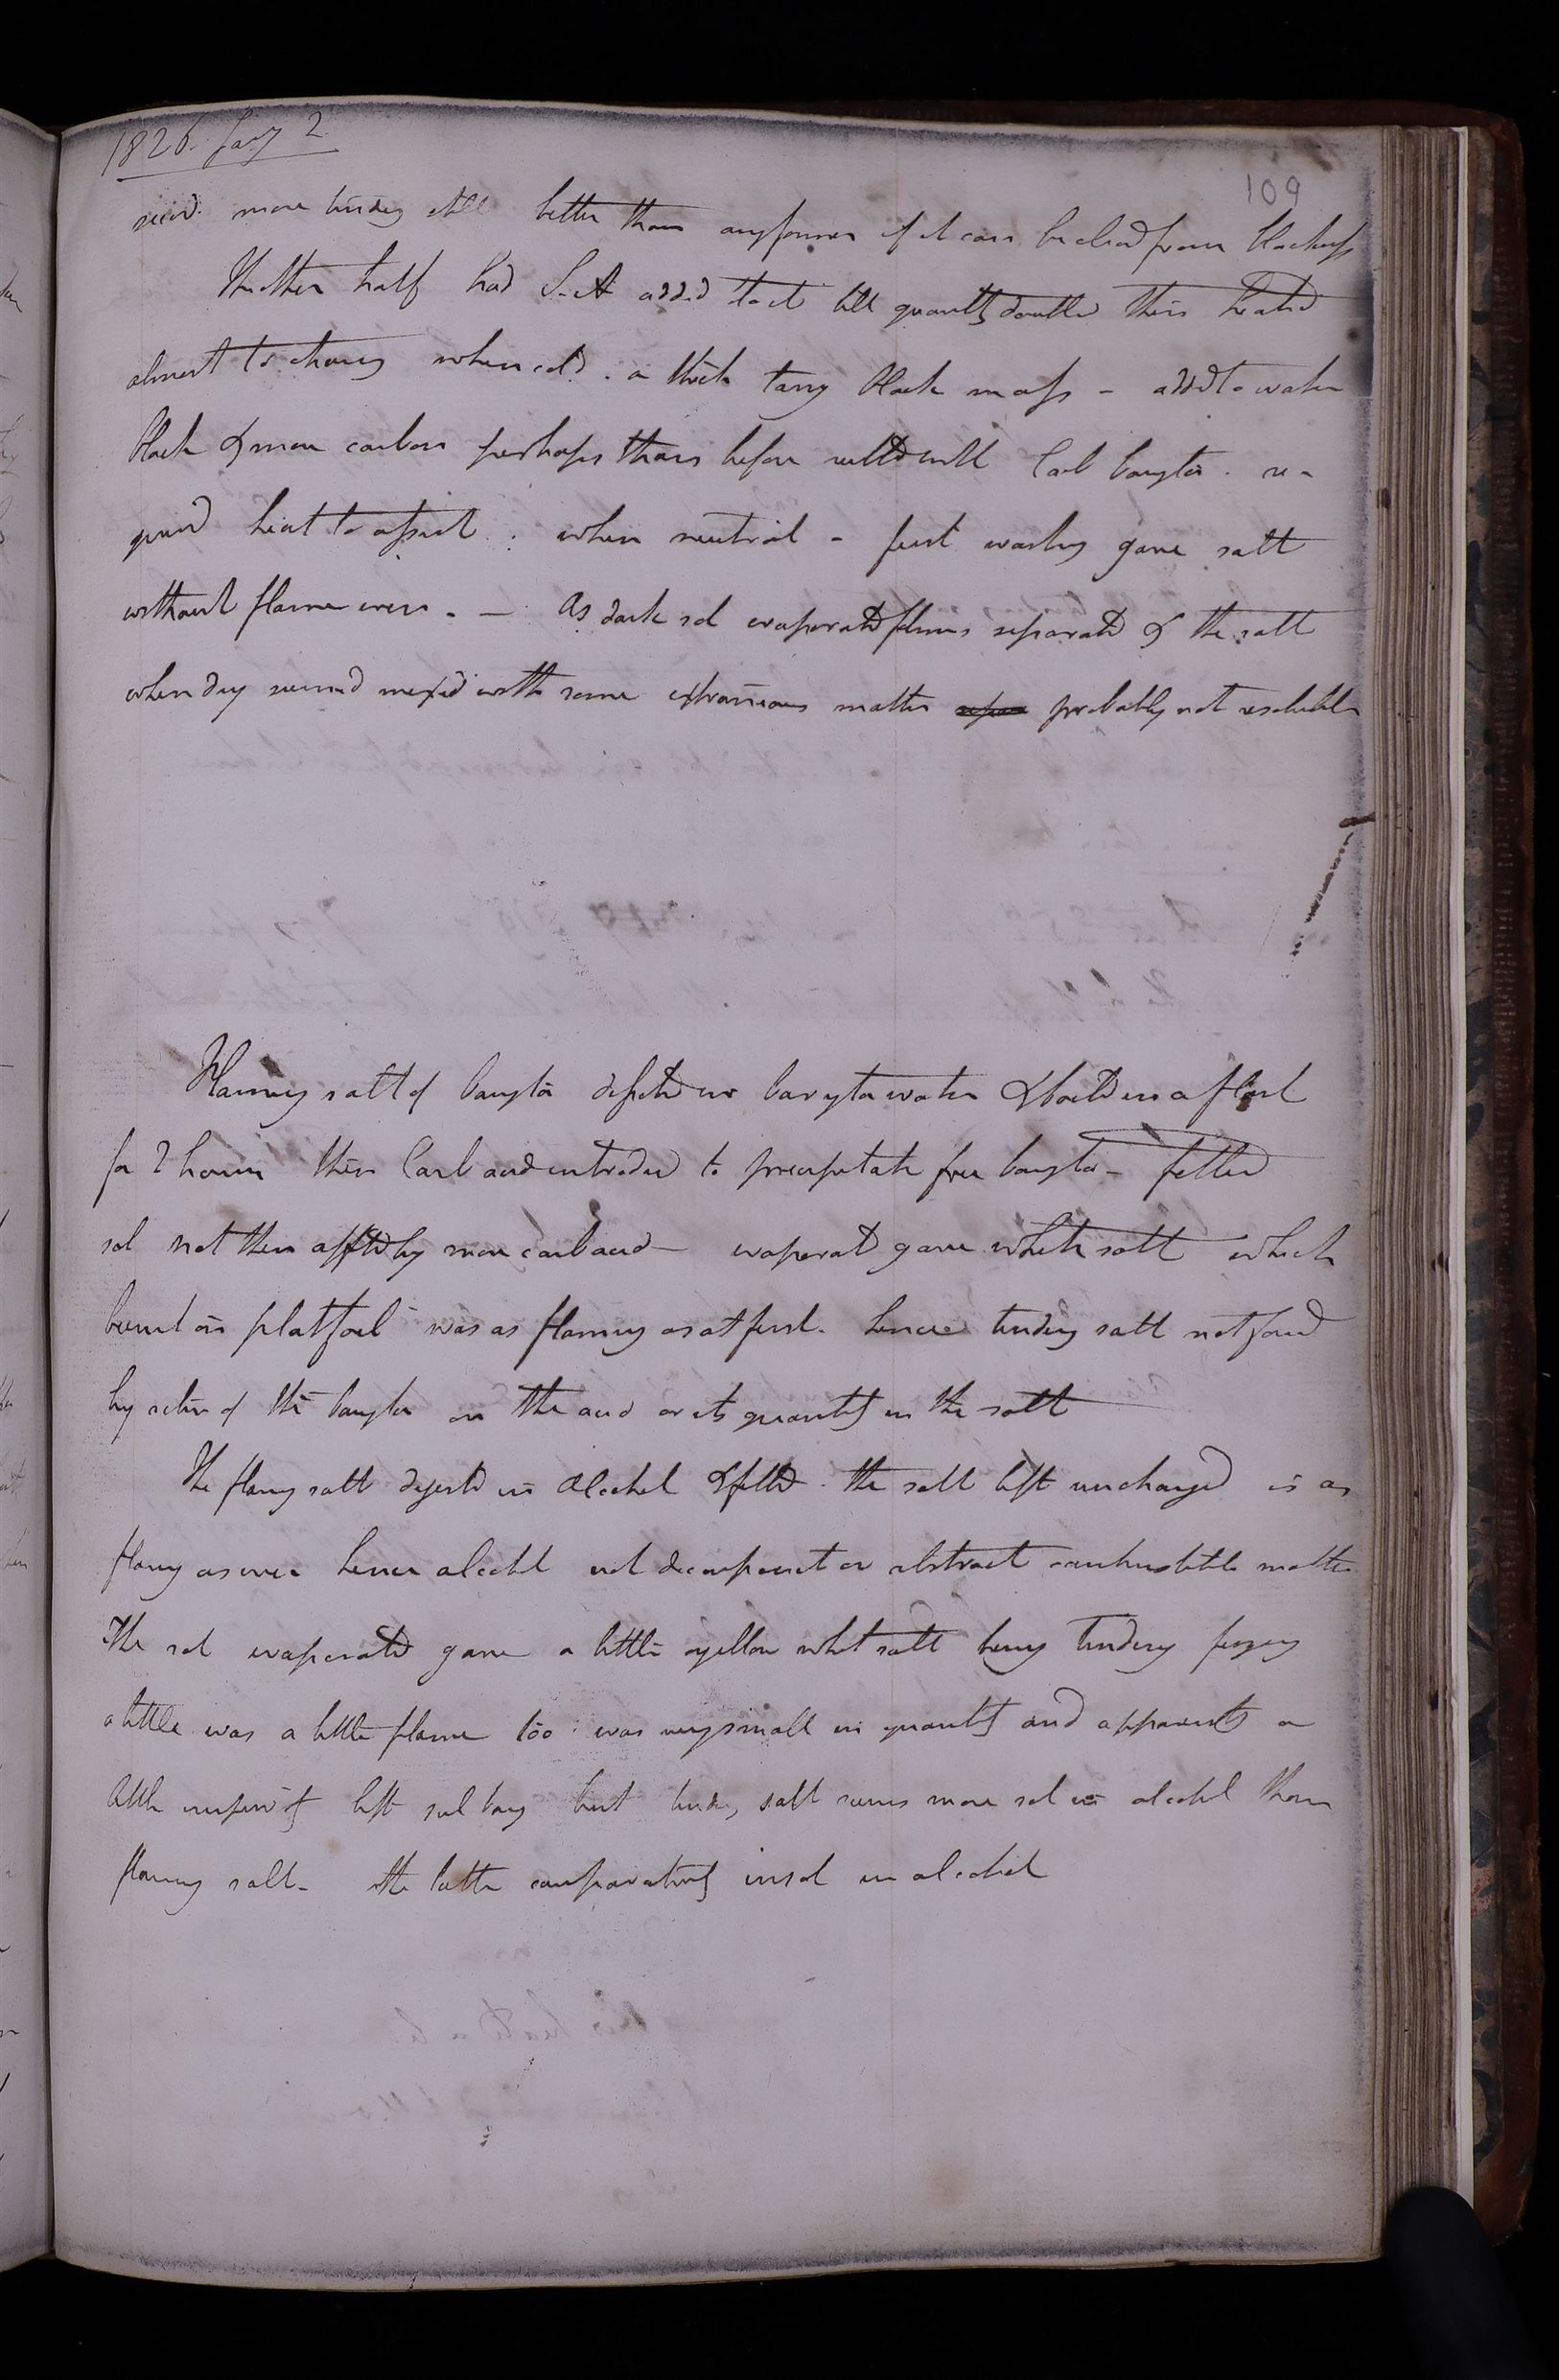 1826. Jany 2
109
more tindery still better than any former if it can be cleard from blackness
The other half had S. A added to it till quantity doubled then heated
almost to charring when cold. a thick tarry black mass - added to water
black & more carbon perhaps than before rubbd with Carb baryta. re-
quird heat to assist. when neutral - first washing gave salt
without flame even. - As dark sol evaporated films separated & the salt
when dry seemed mixed with some extraneous matter probably not resoluble
Flaming salt of baryta digested in baryta water & boild in a flask
for 2 hours then Carb acid introduced to precipitate free baryta - filterd
sol not then affctd by more carb acid - evaporatd gave white salt which
burnt on plat foil was as flaming as at first. hence tindery salt not formd
by action of the baryta on the acid or its quantity in the salt
The flamy salt digestd in Alcohol & filtd. the salt left unchanged is as
flamy as ever hence alcohol not decompose it or abstract combustible matter
The sol evaporated gave a little yellow whit salt being tindery
a little was a little flame too: was very small in quantity and apparently a
little impurity left but tindry salt seems more sol in alcohol than
flaming salt - the latter comparatively insol in alcohol